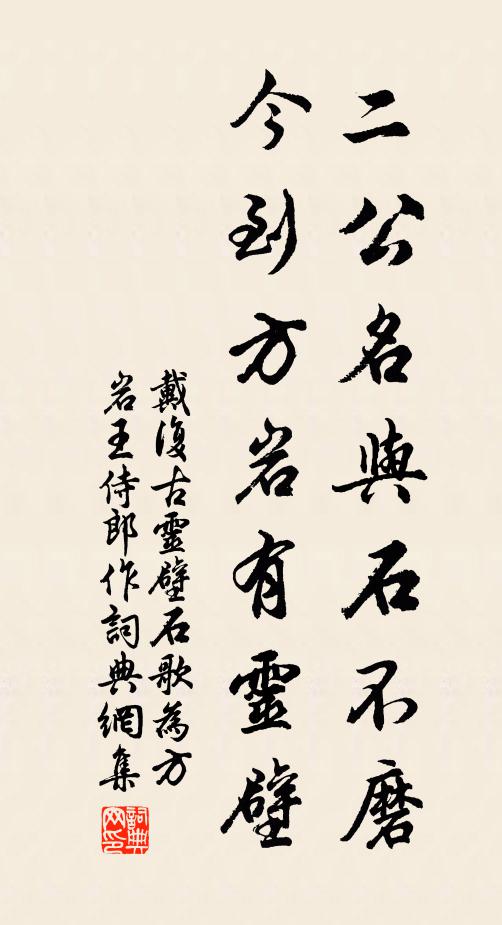 二公名與石不磨
今到方岩有靈壁
戴復古靈壁石歌為方
岩王侍郎作詞典網集
詞典网印